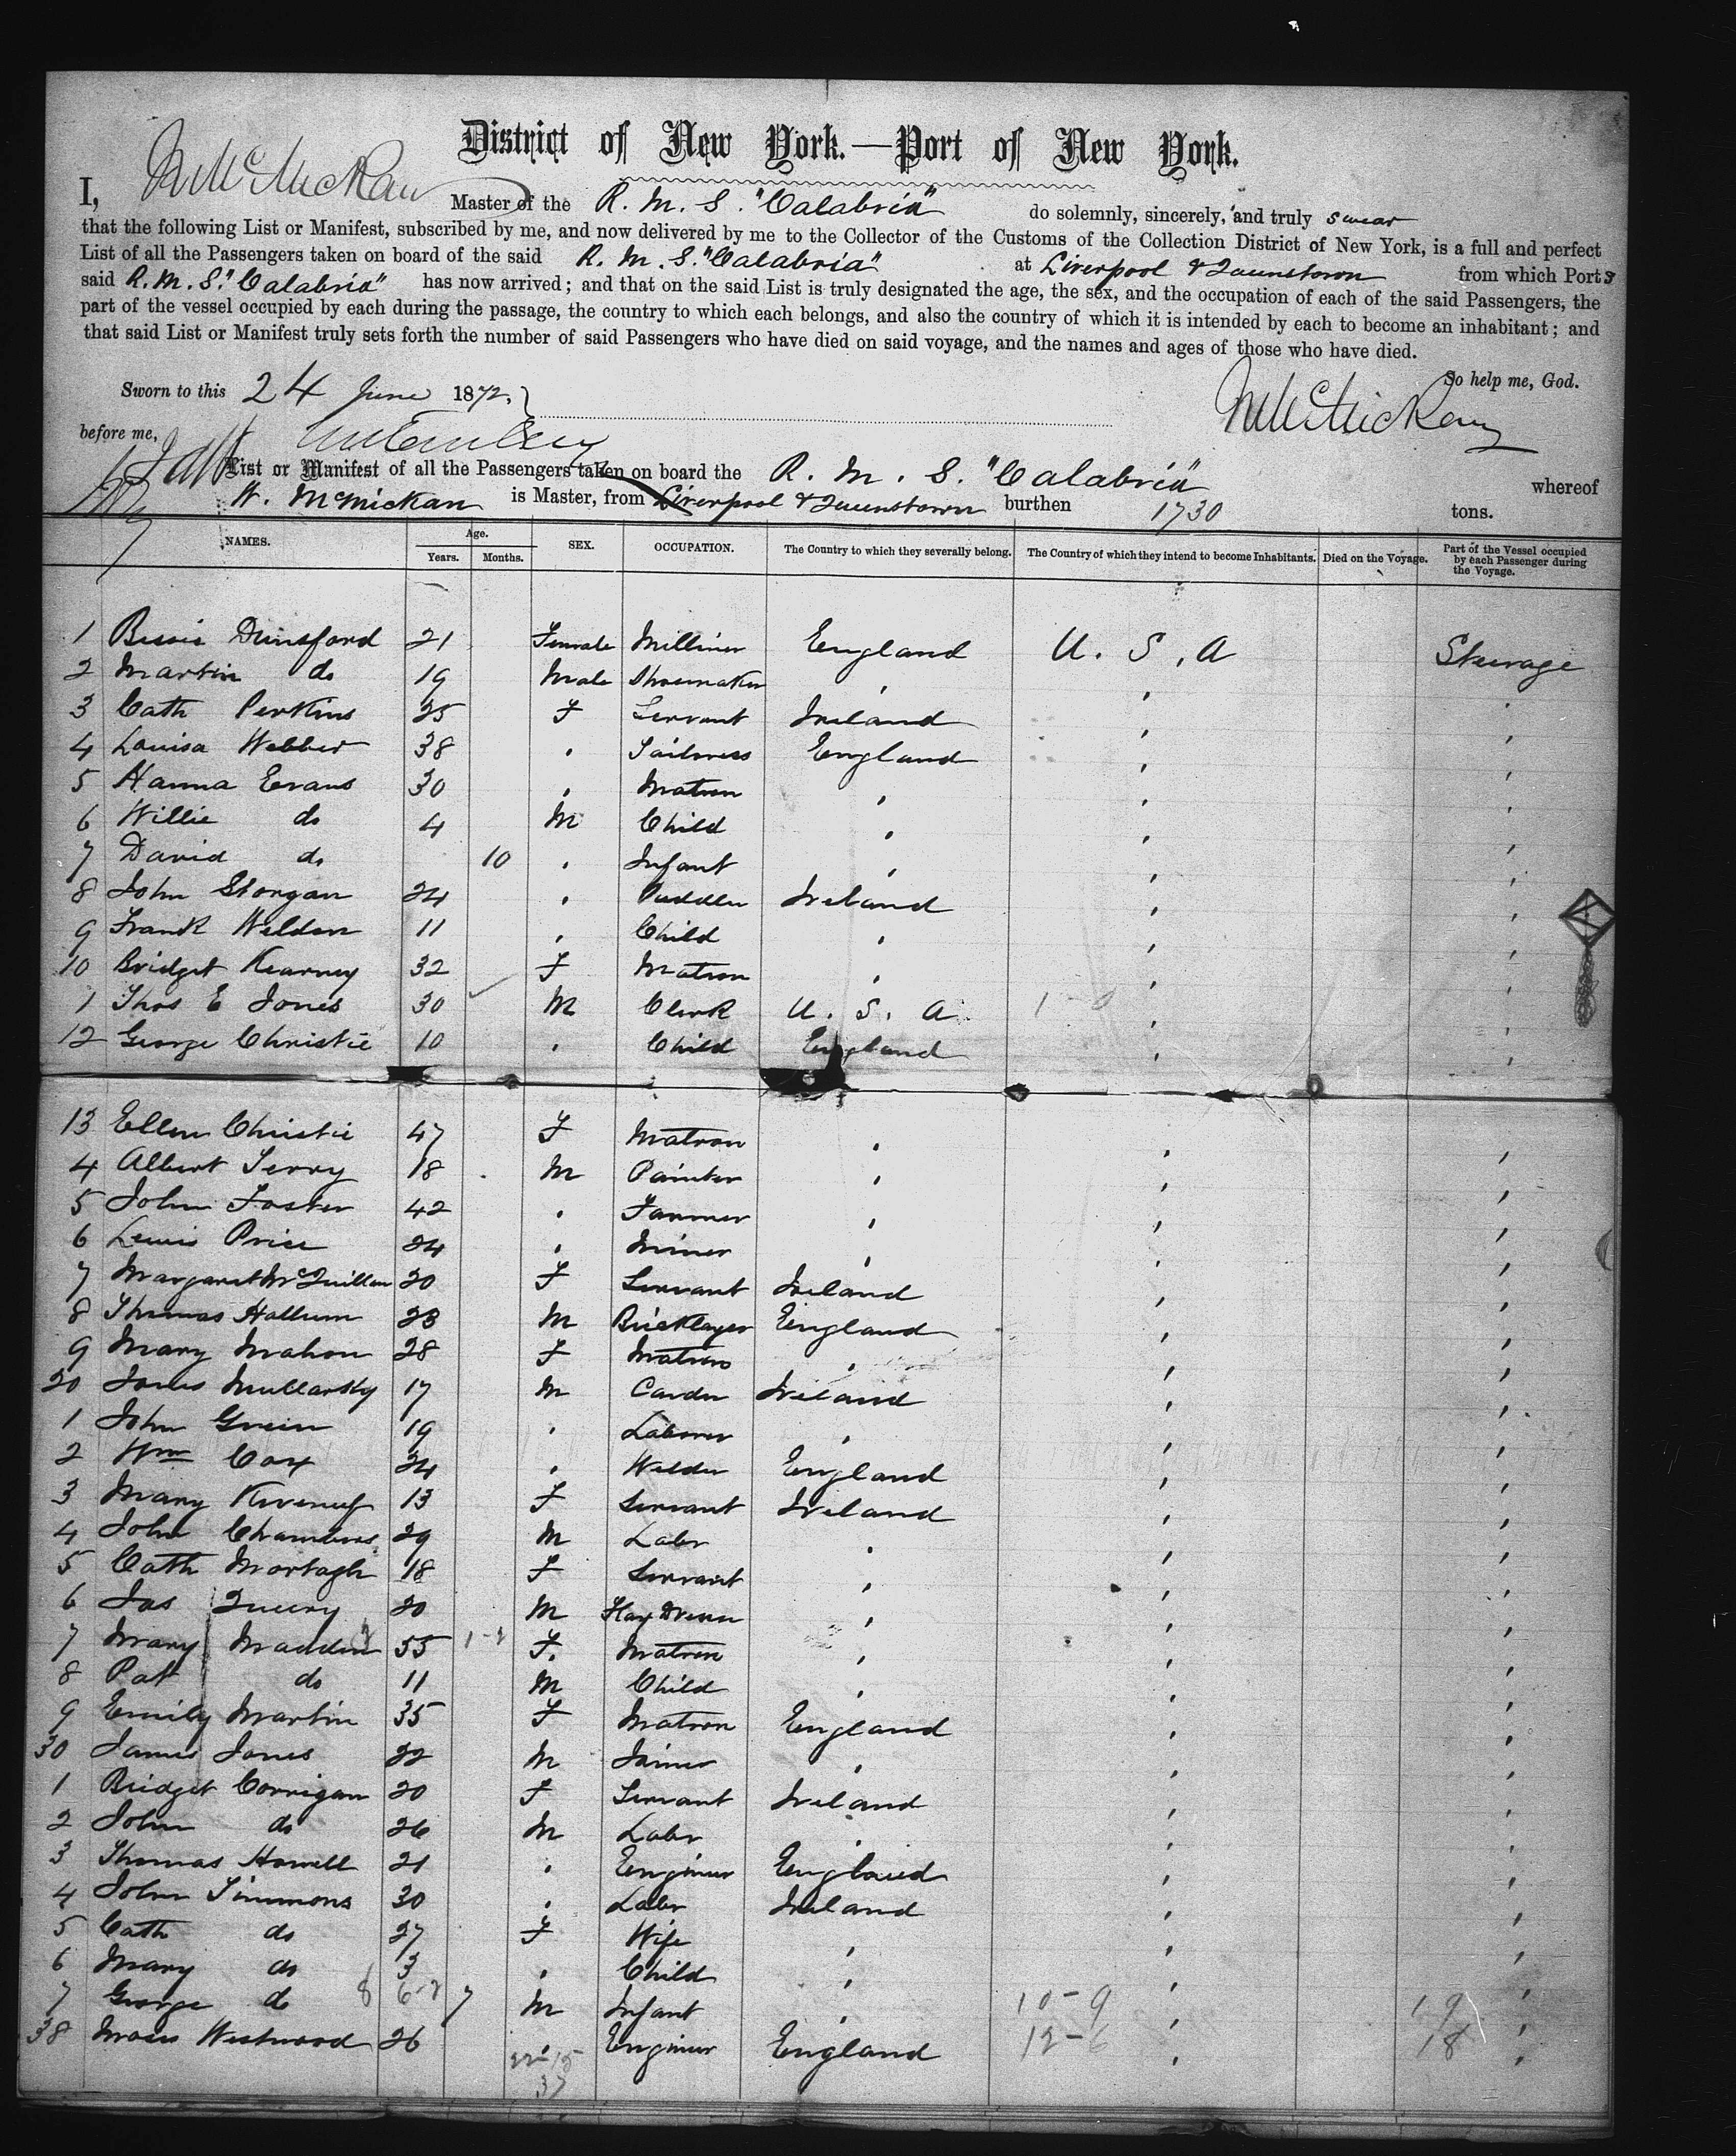 District of New York.—Port of New York.
I, W McMickan Master of the R. M. S. "Calabria" do solemnly, sincerely, and truly swear
that the following List or Manifest, subscribed by me, and now delivered by me to the Collector of the Customs of the Collection District of New York, is a full and perfect
List of all the Passengers taken on board of the said R. M. S. "Calabria" at Liverpool & Queenstown from which Ports
said R. M. S. "Calabria" has now arrived; and that on the said List is truly designated the age, the sex, and the occupation of each of the said Passengers, the
part of the vessel occupied by each during the passage, the country to which each belongs, and also the country of which it is intended by each to become an inhabitant; and
that said List or Manifest truly sets forth the number of said Passengers who have died on said voyage, and the names and ages of those who have died.
So help me, God.
Sworn to this 24 June 1872. W McMickan
before me,
List or Manifest of all the Passengers taken on board the R. M. S. "Calabria" whereof
W. McMickan is Master, from Liverpool & Queenstown burthen 1730 tons.
NAMES. Age. Years. Months. SEX. OCCUPATION. The Country to which they severally belong. The Country of which they intend to become Inhabitants. Died on the Voyage. Part of the Vessel occupied by each Passenger during the Voyage.
1 Bessie Dunsford 21 Female Milliner England U. S. A Steerage
2 Martin do 19 Male Shoemaker , , ,
3 Cath Perkins 25 F Servant Ireland , ,
4 Louisa Webber 38 . Tailoress England , ,
5 Hanna Evans 30 , Matron , , ,
6 Willie do 4 M Child , , ,
7 David do 10 . Infant , , ,
8 John Storgan 24 . Puddler Ireland , ,
9 Frank Weldon 11 , Child , , ,
10 Bridget Kearney 32 F Matron , , ,
1 Thos E Jones 30 M Clerk U. S. A , ,
12 George Christie 10 . Child England , ,
13 Ellen Christie 47 F Matron , , ,
4 Albert Terry 18 M Painter , , ,
5 John Foster 42 . Farmer , , ,
6 Lewis Price 24 . Miner , , ,
7 Margaret McQuillan 20 F Servant Ireland , ,
8 Thomas Hallum 23 M Bricklayer England , ,
9 Mary Mahon 28 F Matron , , ,
20 James Mullarky 17 M Carder Ireland , ,
1 John Green 19 . Laborer , , ,
2 Wm Cox 24 . Welder England , ,
3 Mary 13 F Servant Ireland , ,
4 John Chambers 29 M Labr . , ,
5 Cath Mortagh 18 F Servant , , ,
6 Jas Query 20 M Flax Dresser , , ,
7 Mary Madden 55 F. Matron , , ,
8 Pat do 11 M Child , , ,
9 Emily Martin 35 F Matron England , ,
30 James Jones 22 M Joiner , , ,
1 Bridget Corrigan 20 F Servant Ireland , ,
2 John do 26 M Labr . , ,
3 Thomas Howell 21 . Engineer England , ,
4 John Simmons 30 . Labr Ireland , ,
5 Cath do 27 F Wife , , ,
6 Mary do 3 . Child , , ,
7 George do 7 M Infant , , ,
10-9 19
38 Moses Westwood 26 . Engineer England , ,
12-6 18
22-15
37